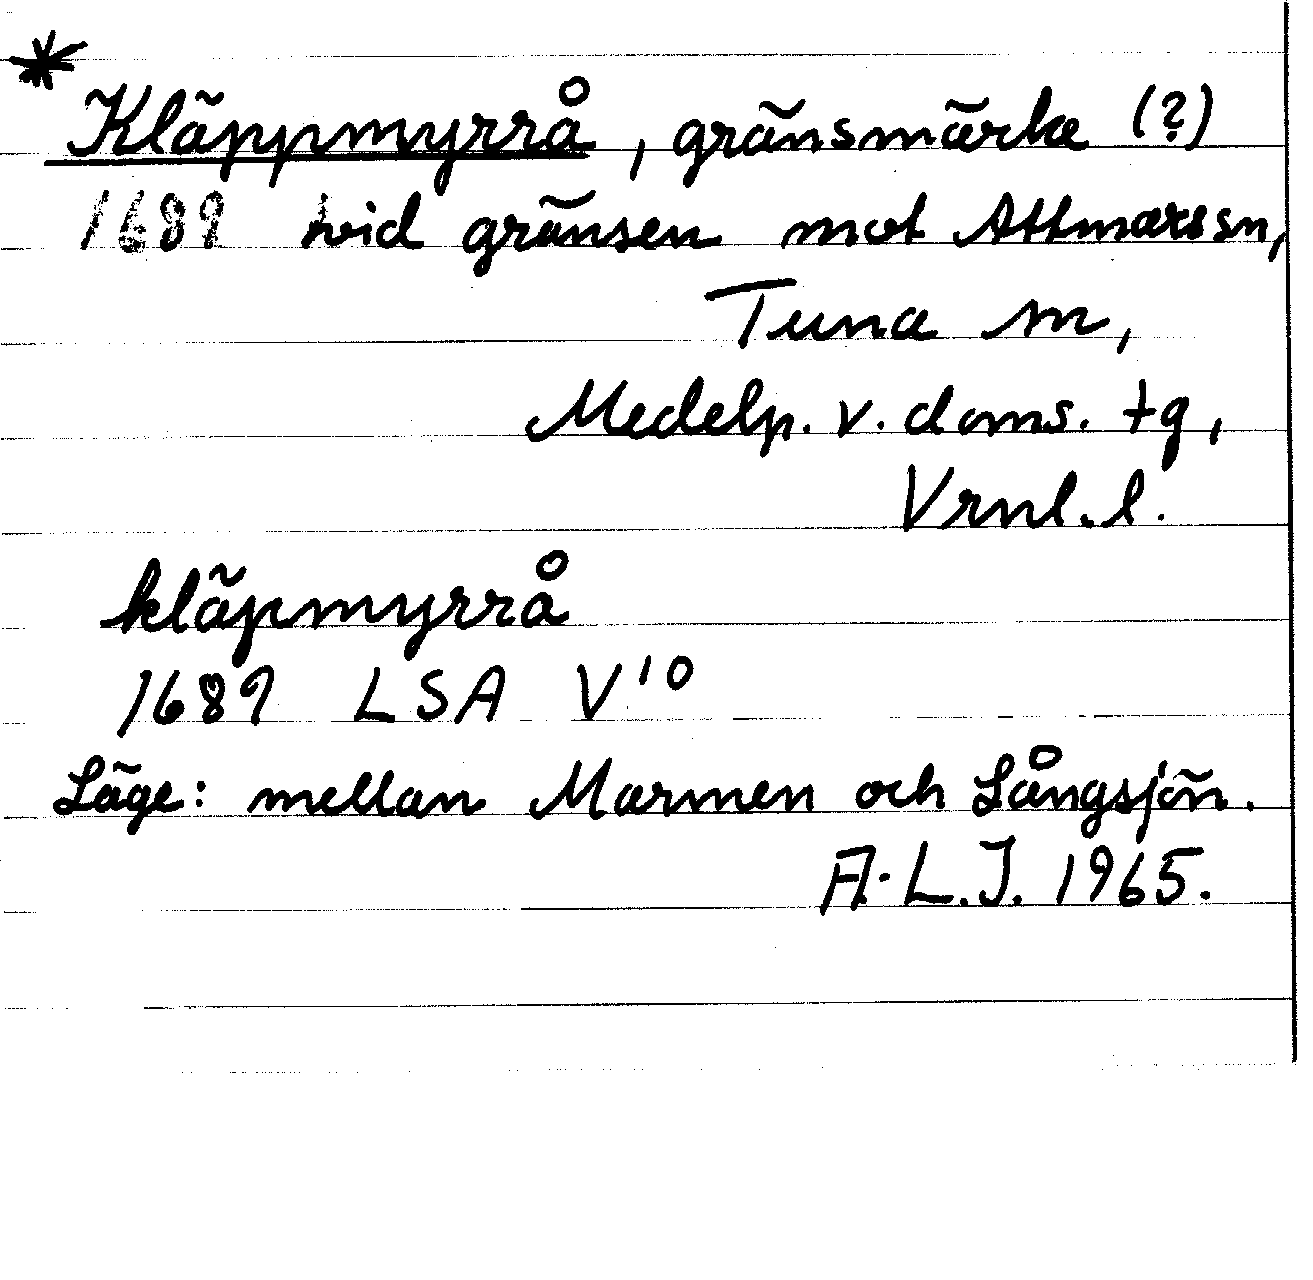 *
Kläppmyrrå, gränsmärke (?)
1689 vid gränsen mot Attmars sn,
Tuna sn,
Medelp. v. doms. tg,
Vrnl. l.
kläpmyrrå
1689 LSA V10
Läge: mellan Marmen och Långsjön.
A.L.J. 1965.